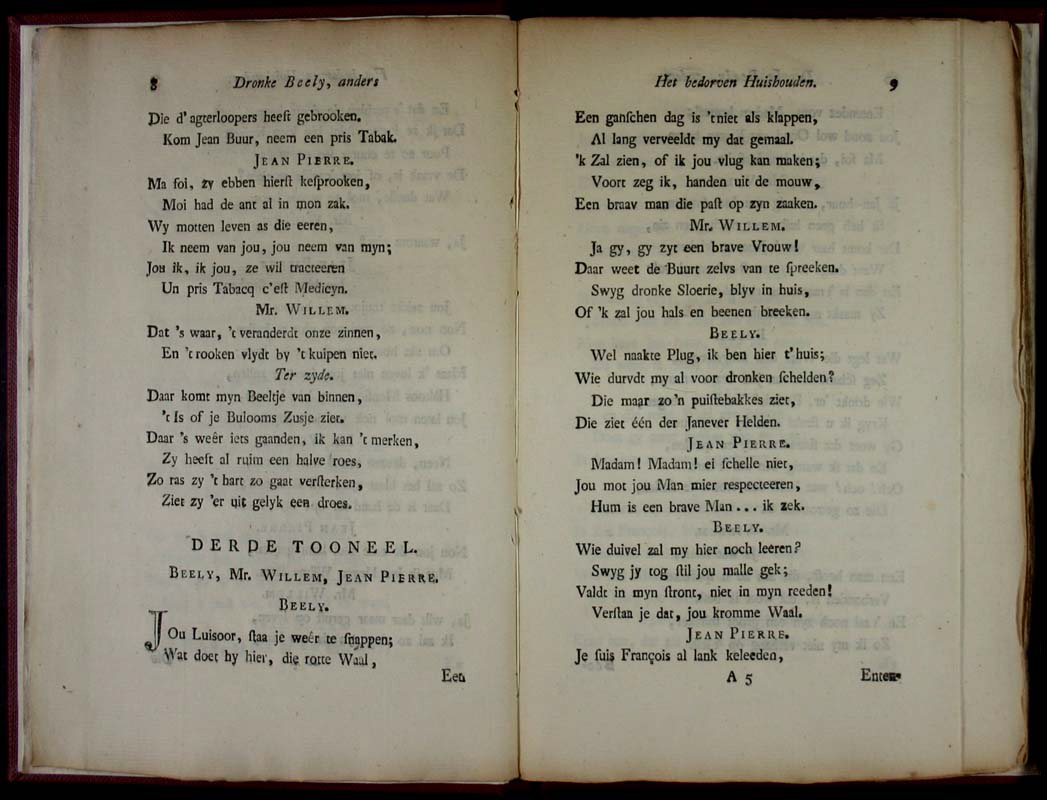 8 Dronke Beely, anders
Die d' agterloopers heeft gebrooken.
Kom Jean Buur, neem een pris Tabak.
JEAN PIERRE.
Ma foi, zy ebben hierſt keſprooken,
Moi had de ant al in mon zak.
Wy motten leven as die eeren,
Ik neem van jou, jou neem van myn;
Jou ik, ik jou, ze wil tracteeren
Un pris Tabacq c'eſt Medicyn.
Mr. WILLEM.
Dat 's waar, 't veranderdt onze zinnen,
En 't rooken vlydt by 't kuipen niet.
Ter zyde.
Daar komt myn Beeltje van binnen,
't Is of je Bulooms Zusje ziet.
Daar 's weêr iets gaanden, ik kan 't merken,
Zy heeft al ruim een halve roes,
Zo ras zy 't hart zo gaat verſterken,
Ziet zy 'er uit gelyk een droes.
DERDE TOONEEL.
BEELY, Mr. WILLEM, JEAN PIERRE.
BEELY.
JOu Luisoor, ſtaa je weêr te ſnappen;
Wat doet hy hier, die rotte Waal,
Een
Het bedorven Huishouden. 9
Een ganſchen dag is 't niet als klappen,
Al lang verveeldt my dat gemaal.
'k Zal zien, of ik jou vlug kan maken;
Voort zeg ik, handen uit de mouw,
Een braav man die paſt op zyn zaaken.
Mr. WILLEM.
Ja gy, gy zyt een brave Vrouw!
Daar weet de Buurt zelvs van te ſpreeken.
Swyg dronke Sloerie, blyv in huis,
Of 'k zal jou hals en beenen breeken.
BEELY.
Wel naakte Plug, ik ben hier t'huis;
Wie durvdt my al voor dronken ſchelden?
Die maar zo'n puiſtebakkes ziet,
Die ziet één der Janever Helden.
JEAN PIERRE.
Madam! Madam! ei ſchelle niet,
Jou mot jou Man mier reſpecteeren,
Hum is een brave Man ... ik zek.
BEELY.
Wie duivel zal my hier noch leeren?
Swyg jy tog ſtil jou malle gek;
Valdt in myn ſtront, niet in myn reeden!
Verſtan je dat, jou kromme Waal.
JEAN PIERRE.
Je ſuis François al lank keleeden,
A 5 Enten-